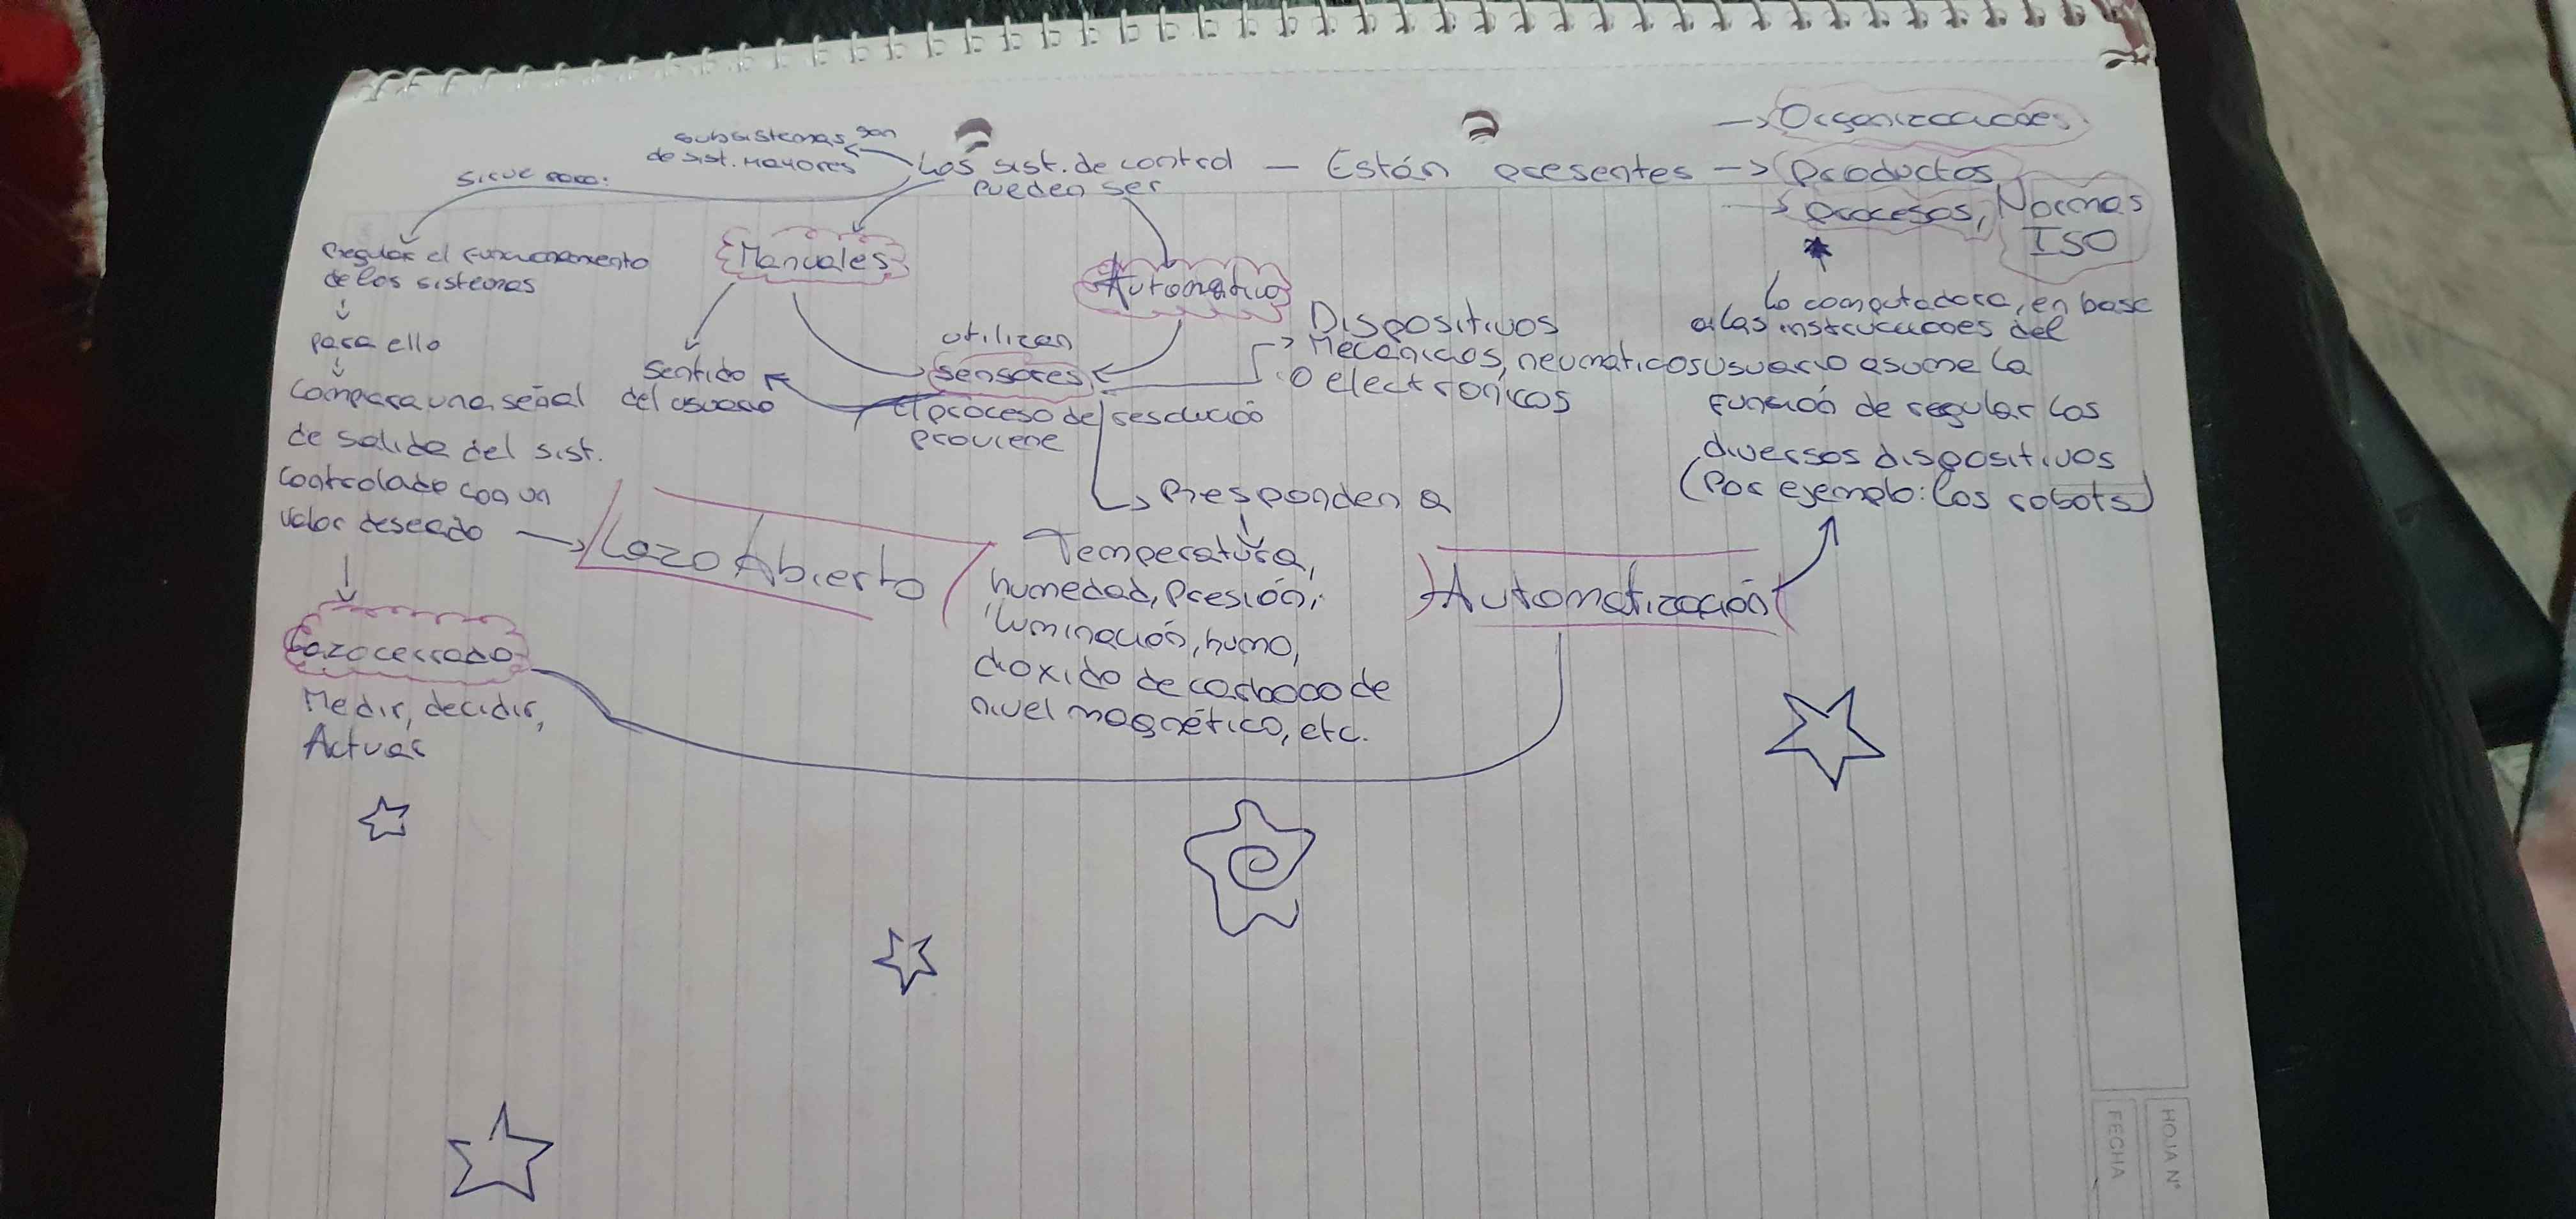 subsistemas son
de sist. mayores
Los sist. de control — Están presentes → Organizaciones
→ productos
→ procesos, Normas
ISO
pueden ser
sirve para:
Regular el funcionamiento
de los sistemas
para ello
Compara una señal
de salida del sist.
controlado con un
valor deseado
Lazo Abierto
Lazo cerrado
Medir, decidir,
Actuar
Manuales
Sentido
del usuario
Automático
utilizan
sensores
El proceso de resolución
proviene
Dispositivos
Mecánicos, neumaticos
o electronicos
Responden a
Temperatura,
humedad, Presión,
iluminación, humo,
dioxido de carbono de
nivel magnético, etc.
Automatización
La computadora, en base
a las instrucciones del
usuario asume la
función de regular los
diversos dispositivos
(Por ejemplo: los robots)
HOJA N°
FECHA